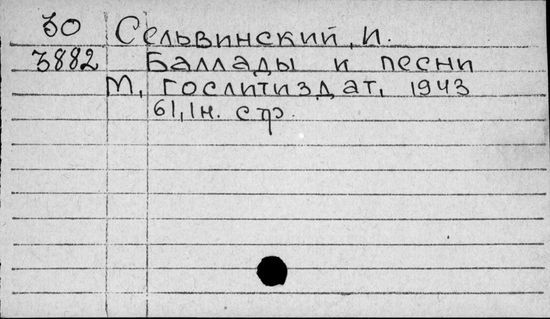 30 Сельвинский, И.
3882 Баллады и песни
М, Гослитиздат, 1943
61, 1н. стр.